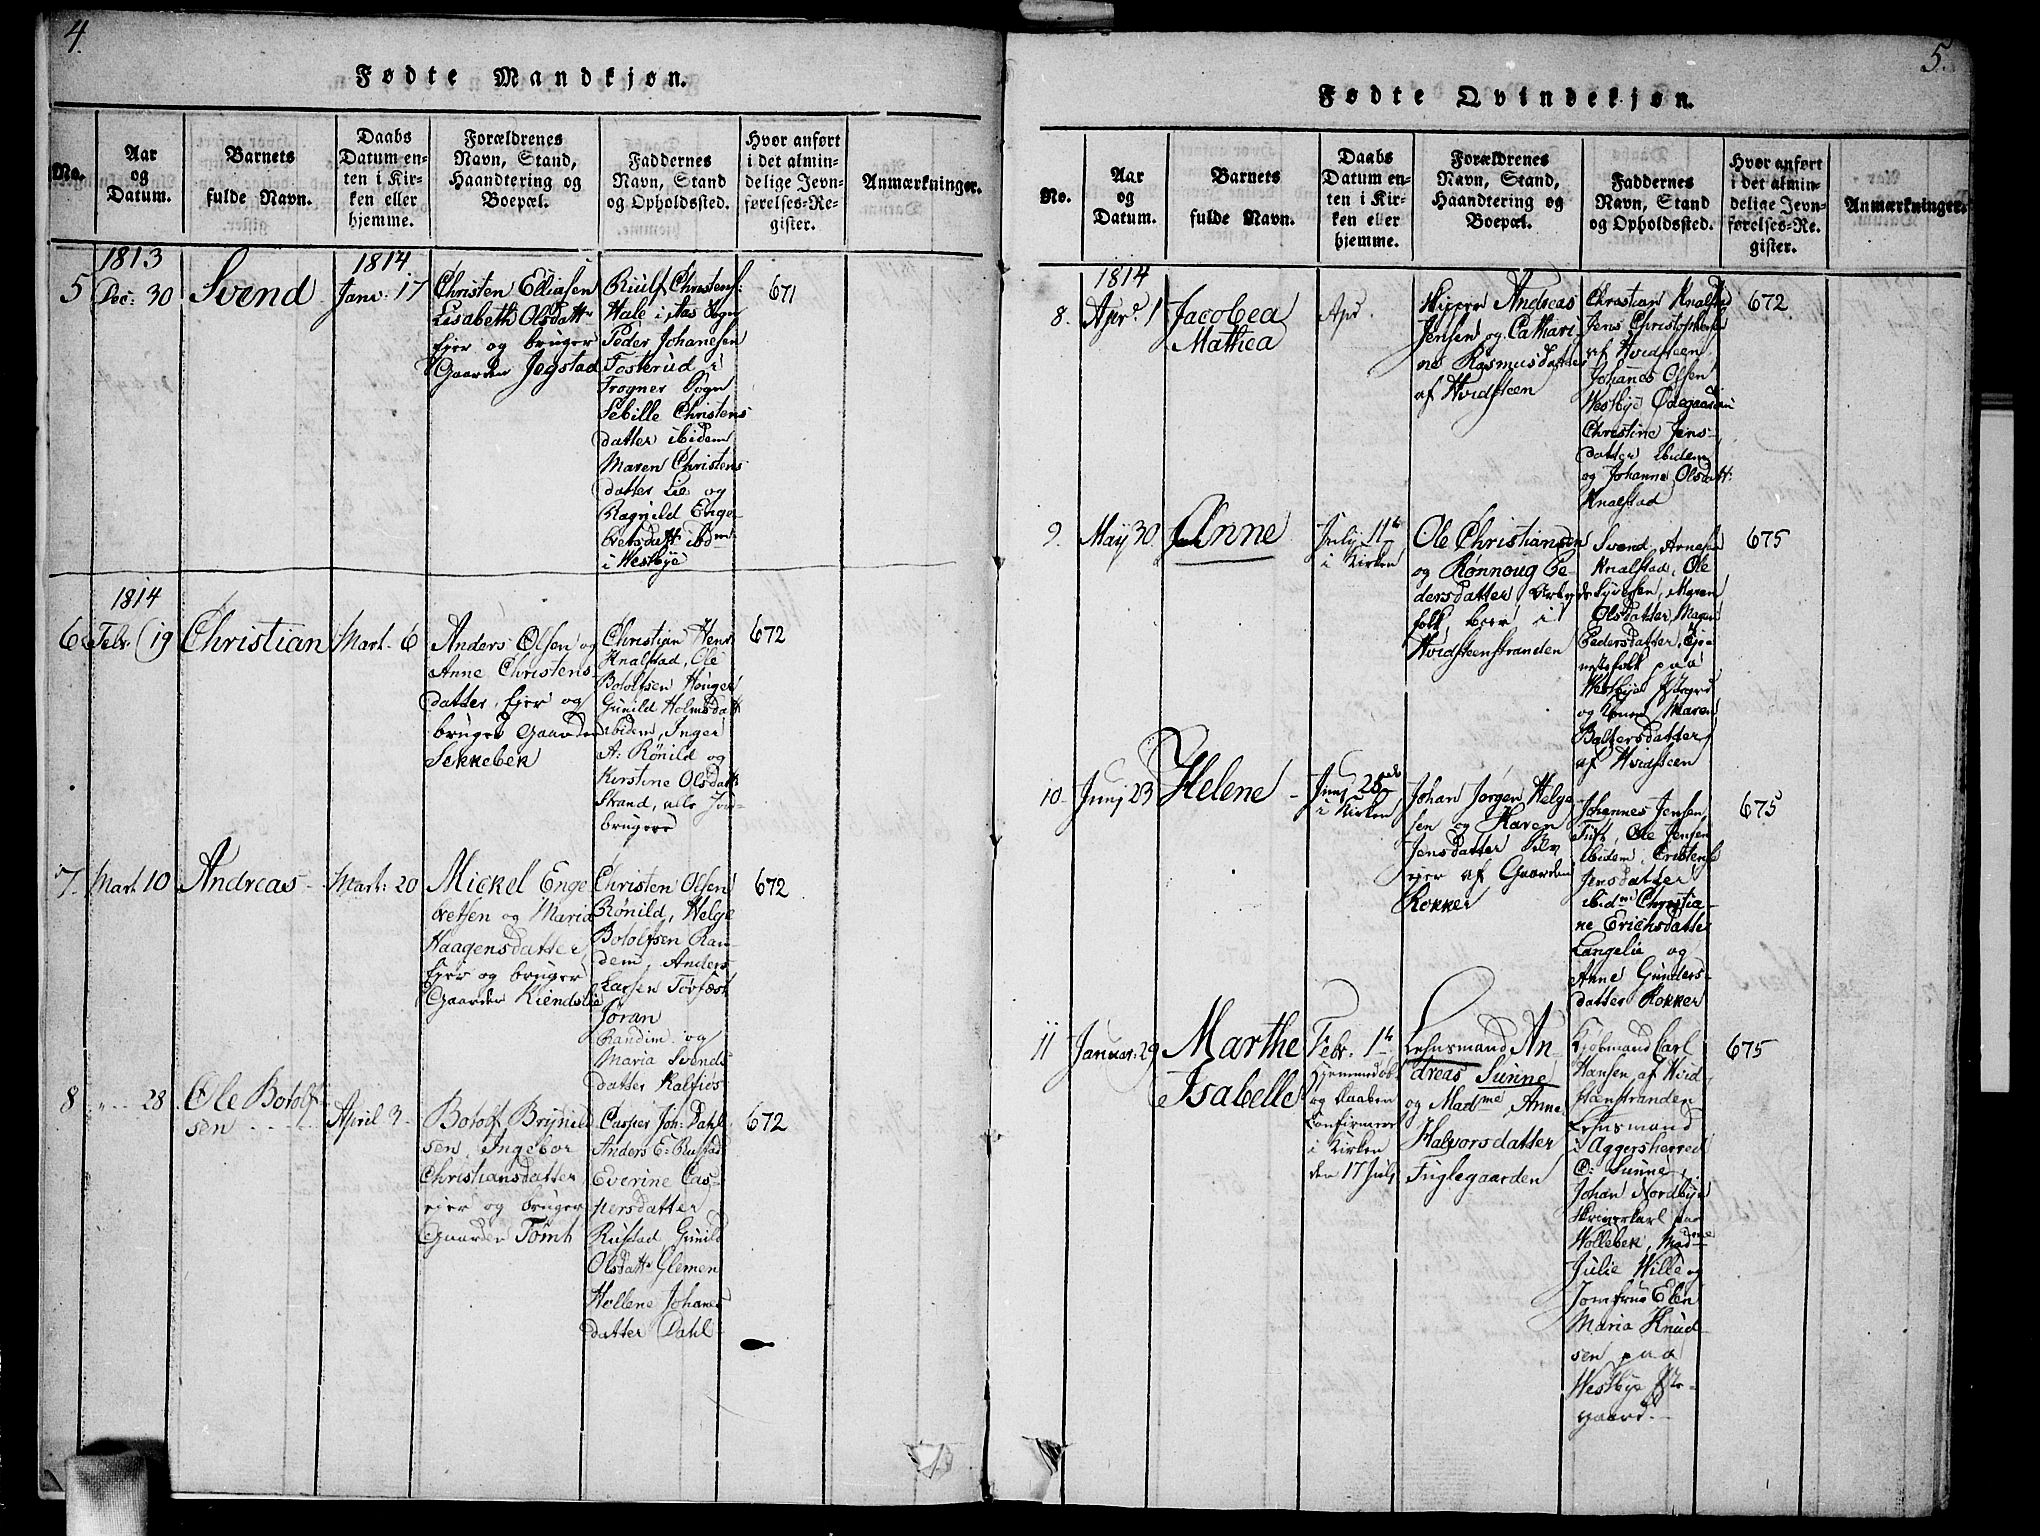 4.
Fødte Mandkjøn.
No.
Aar
og
Datum.
Barnets
fulde Navn.
Daabs
Datum en-
ten i Kir-
ken eller
hjemme.
Forældrenes
Navn, Stand,
Haandtering og
Boepæl.
Faddernes
Navn, Stand
og Opholdssted.
Hvor anført
i det almin-
delige Jevn-
førelses-Re-
gister.
Anmærkninger.
1813
5
Dec: 30
Svend
1814
Janv: 17
Christen Elliasen
Lisabeth Olsdattr
Ejer og bruger
Gaarden Jegstad
Christens:
Hale i Aas Sogn
Peder Johanesen
Fosterud i
Frogner Sogn
Sebille Christens
datter ibidem
Maren Christens
datter Lie og
Ragnild Enge
bretsdattr ibdm
i Westbye
671
1814
6
Febr. 19
Christian
Mart. 6
Anders Olsen og
Anne Christens-
datter, Ejer og
bruger Gaarden
Sekkebek
Christian Jens
Knalstad, Ole
Botolfsen Houger
Gunild Holmsdatt
ibidem, Inger
A: Rönild og
Kirstine Olsdattr
Strand, alle Jord-
brugere
672
7.
Mart. 10
Andreas
Mart: 20
Mickel Enge
bretsen og Maria
Haagensdatter
Ejer og bruger
Gaarden Kiendslie
Christen Olsen
Rönild, Helge
Botolfsen Ran-
dem, Anders
Larsen Torfæst
Jöran
Randim og
Maria Svends
datter Kalfös-
672
8
" 28
Ole Botolf-
sen
April 3
Botolf Brynild
sen, Ingebor
Christiansdatter
ejer og bruger
Gaarden Tömt
Casper Joh: Dahl
Anders E: Rustad
Everine Cas-
persdatter
Rustad Gunild
Olsdattr Glemen
Hellene Johanes
datter Dahl
672
5.
Fødte Qvindekjøn.
No.
Aar
og
Datum.
Barnets
fulde Navn.
Daabs
Datum en-
ten i Kir-
ken eller
hjemme.
Forældrenes
Navn, Stand,
Haandtering og
Boepæl.
Faddernes
Navn, Stand
og Opholdssted.
Hvor anført
i det almin-
delige Jevn-
førelses-Re-
gister.
Anmærkninger.
1814
8.
Apr. 1
Jacobea
Mathea
Apr.
Skipper Andreas
Jensen og Cathari
ne Rasmusdatter
af Hvidsteen
Christian Knalstad
Jens Christophersen
af Hvidsteen
Johanes Olsen
Westbye Ødegaarden
Christine Jens-
datter ibidem
og Johanne Olsdattr:
Knalstad
672
9.
May 30
Anne
July 11te
i Kirken
Ole Christiansen
og Rönnoug Pe-
dersdatter, Arbejds
folk, boer i
Hvidsteenstranden
Svend Arnesen
Knalstad, Ole
Syversen, Maren
Olsdatter, Magn
Pedersdatter, Tje-
nestefolk paa
Westbye Præstegrd
og Konen Maren
Baltersdatter
af Hvidsteen
675
10
Junj 23
Helene
Junj 25de
i Kirken
Johan Jørgen Helge
sen og Karen
Jensdatter Selv
ejer af Gaarden
Rokker
Johannes Jensen
Tuft, Ole Jensen
ibidem, Cristense
Jensdatter
ibidm Christia-
ne Erichsdatter
Langelie og
Anne Gunders-
datter Rokker
675
11
Januar: 29
Marthe
Isabelle
Febr. 1te
Hjemmedøbt
og Daaben
Confirmeret
i Kirken
den 17 July
Lehnsmand An-
dreas Sunne
og Madme Anne
Halvorsdatter
Fuglegaarden
Kjøbmand Carl
Hansen af Hvid
steenstranden
Lehnsmand
i Aggersherred
C: Sunne,
Johan Nordbye
Skriverkarl paa
Wollebek, Madme
Julie Wille og
Jomfrue Elen
Maria Knud-
sen paa
Westbye Præste-
gaard.
675